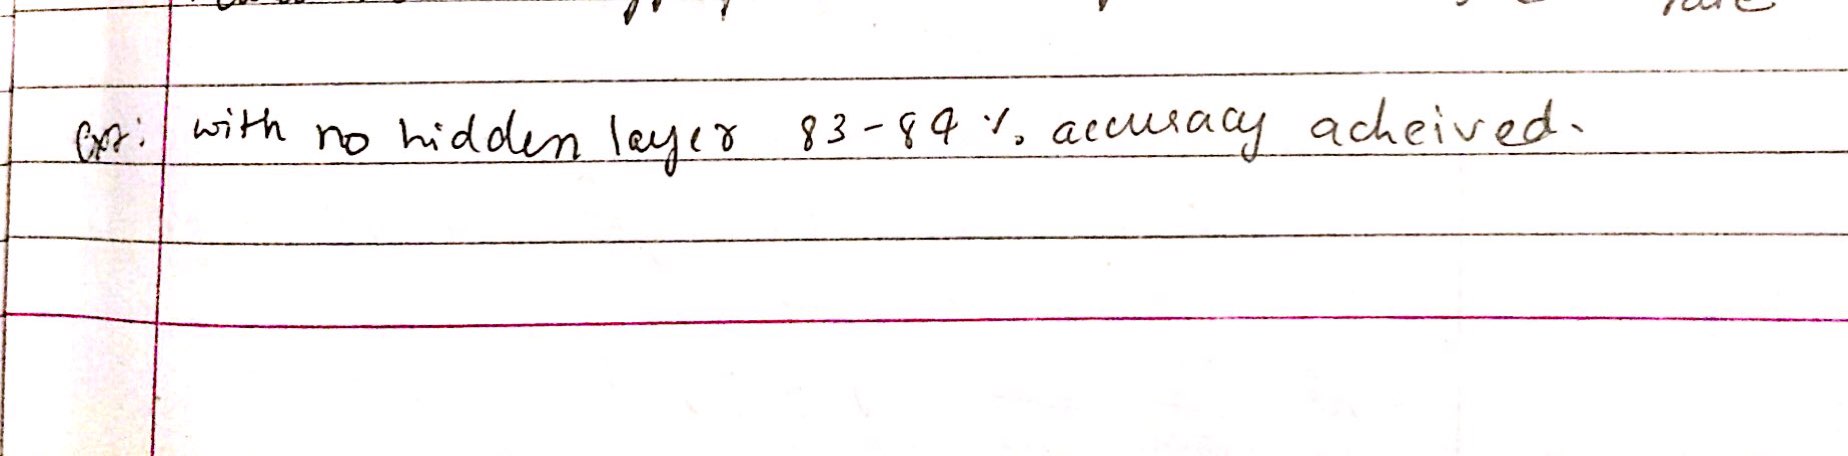 rate
Ex: with no hidden layer 83-84 %. accuracy acheived.